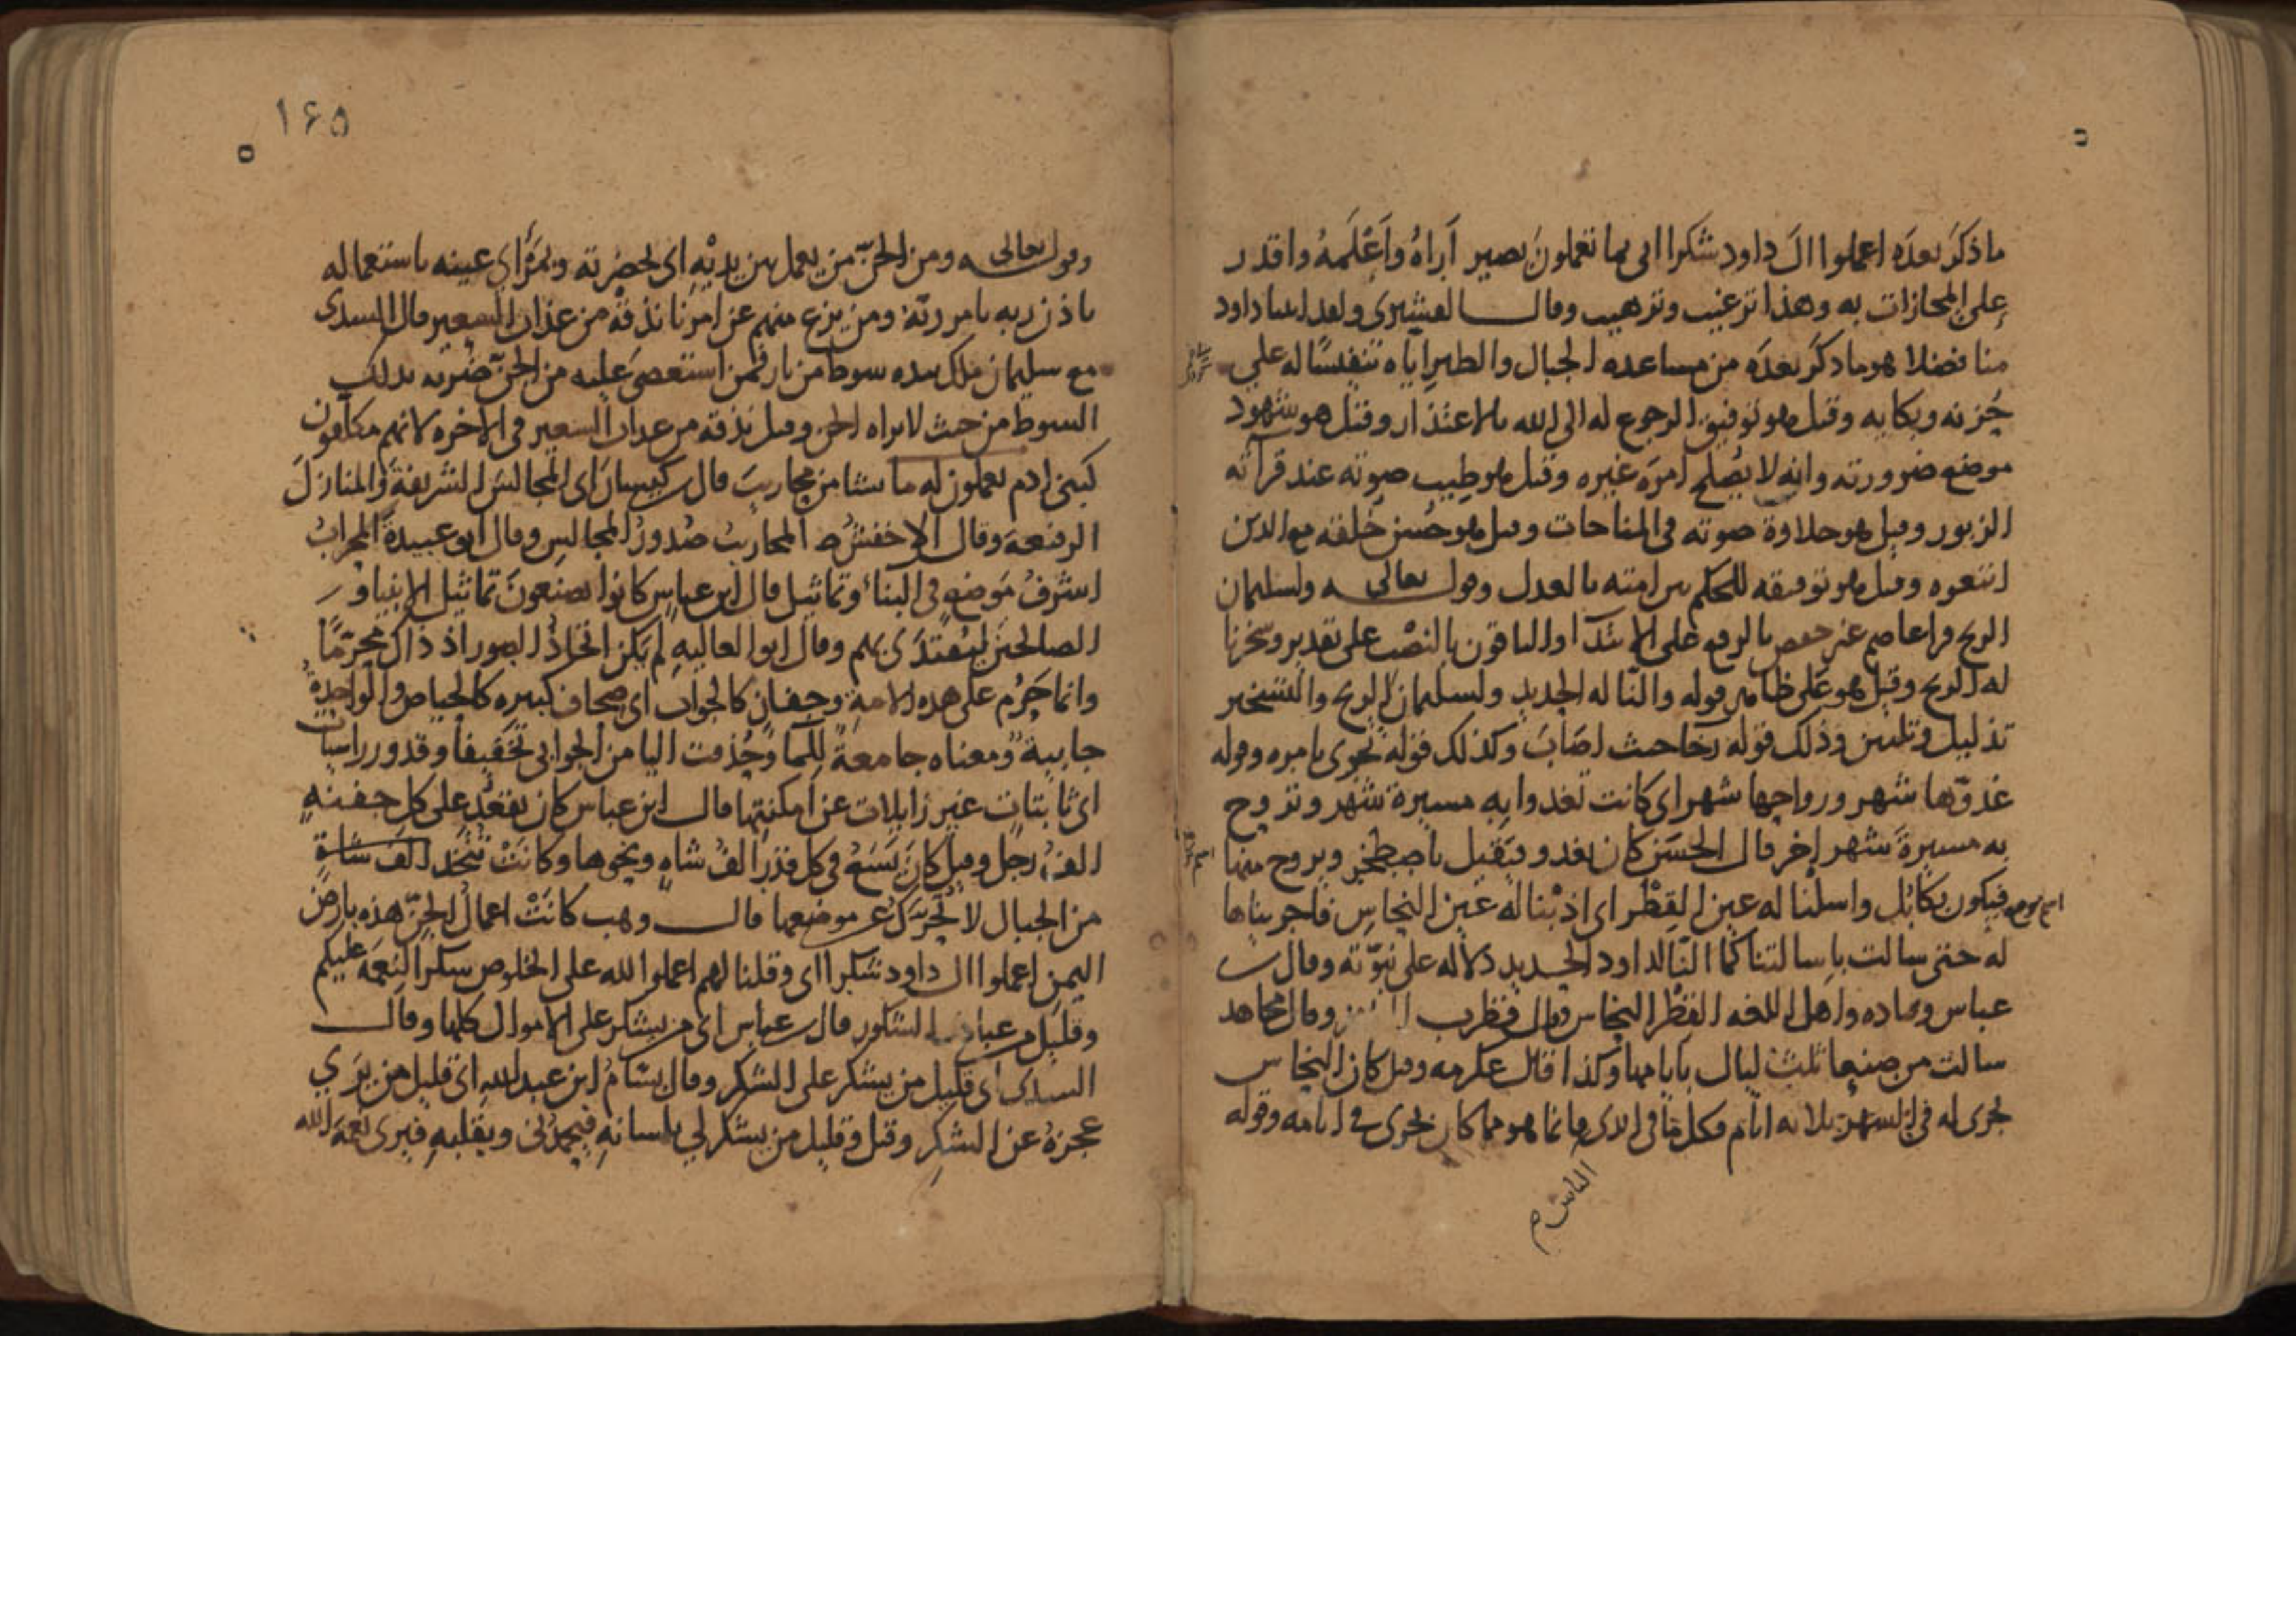 ما ذكر بعده اعملوا ال داود شكرا اني بما تعملون بصير اراه واعلمه واقدر
على المجازات به وهذا ترغيب وترهيب وقال القشيري ولقد اتينا داود
منا فضلا هو ما ذكر بعده من مساعده الجبال والطير اياه تنفيسا له على
حزنه وبكايه وقيل هو توفيق الرجوع له الى الله بالاعتذار وقيل هو شهود
موضع ضرورته وانه لا يصلح امره غيره وقيل هو طيب صوته عند قرآته
الزبور وقيل هو حلاوة صوته في المناجات وقيل هو حسن خلقه مع الذين
اتبعوه وقيل هو توفيقه للحكم بين امته بالعدل وقوله تعالى ولسليمان
الريح قرا عاصم غير حفص بالرفع على الابتدآ والباقون بالنصب على تقدير وسخرنا
له الريح وقيل هو على ظاهر قوله والنا له الحديد ولسليمان الريح والتسخير
تذليل وتليين وذلك قوله رخا حيث اصاب وكذلك قوله تجرى بامره وقوله
غدوها شهر ورواحها شهر اى كانت تغدوا به مسيرة شهر وتروح
به مسيرة شهر اخر قال الحسن كان يغدو فيقيل باصطخر ويروح منها
فيكون بكابل واسلنا له عين القطر اى اذبنا له عين النحاس فاجريناها
له حتى سالت باسالتنا كما النا لداود الحديد دلاله على نبوته وقال
عباس وقتاده واهل اللغه القطر النحاس وقال قطرب وقال مجاهد
سالت من صنعا ثلث ليال بايامها وكذا قال عكرمه وقيل كان النحاس
يجرى له فى الشهر ثلاثه ايام فكل ما فى ايدى فانما هو مما كان يجرى فى ايامه وقوله
الناس م
١٦٥
وقوله تعالى ومن الجن من يعمل بين يديه اى بحضرته وبمرأى عينه باستعماله
باذن ربه بامر ربه ومن يزغ منهم عن امرنا نذقه من عذاب السعير قال السدى
مع سليمان ملك بيده سوط من نار فمن استعصى عليه من الجن ضربه بذلك
السوط من حيث لا يراه الجن وقيل نذقه من عذاب السعير فى الاخره لانهم مكلفون
كبنى ادم يعملون له ما يشا من محاريب قال كيسان اى المجالس الشريفة والمنازل
الرفيعة وقال الاخفش المحاريب صدور المجالس وقال ابو عبيدة المحراب
اشرف موضع فى البناء وتماثيل قال ابن عباس كانوا يصنعون تماثيل الانبيا و
الصالحين ليقتدى بهم وقال ابو العاليه لم يكن اتخاذ الصور اذ ذاك محرما
وانما حرم على هذه الامة وجفان كالجواب اى صحاف كبيره كالحياض والواحدة
جابية ومعناه جامعة للما وحذفت اليا من الجوابى تخفيفا وقدور راسيات
اى ثابتات غير زايلات عن امكنتها قال ابن عباس كان يقعد على كل جفنه
الف رجل وقيل كان يسع فى كل قدر الف شاه ونحوها وكانت تتخذ
من الجبال لا تحرك عن موضعها قال وهب كانت اعمال الجن هذه بارض
اليمن اعملوا ال داود شكرا اى وقلنا لهم اعملوا لله على الخلوص شكرا لنعمه عليكم
وقليل من عبادى الشكور قال بن عباس اى من يشكر على الاحوال كلها وقال
السدى اى قليل من يشكر على الشكر وقال بسام ابن عبد الله اى قليل من يرى
عجزه عن الشكر وقيل وقليل من يشكر لي بلسانه فيحمدنى وبقلبه فيرى نعمة الله